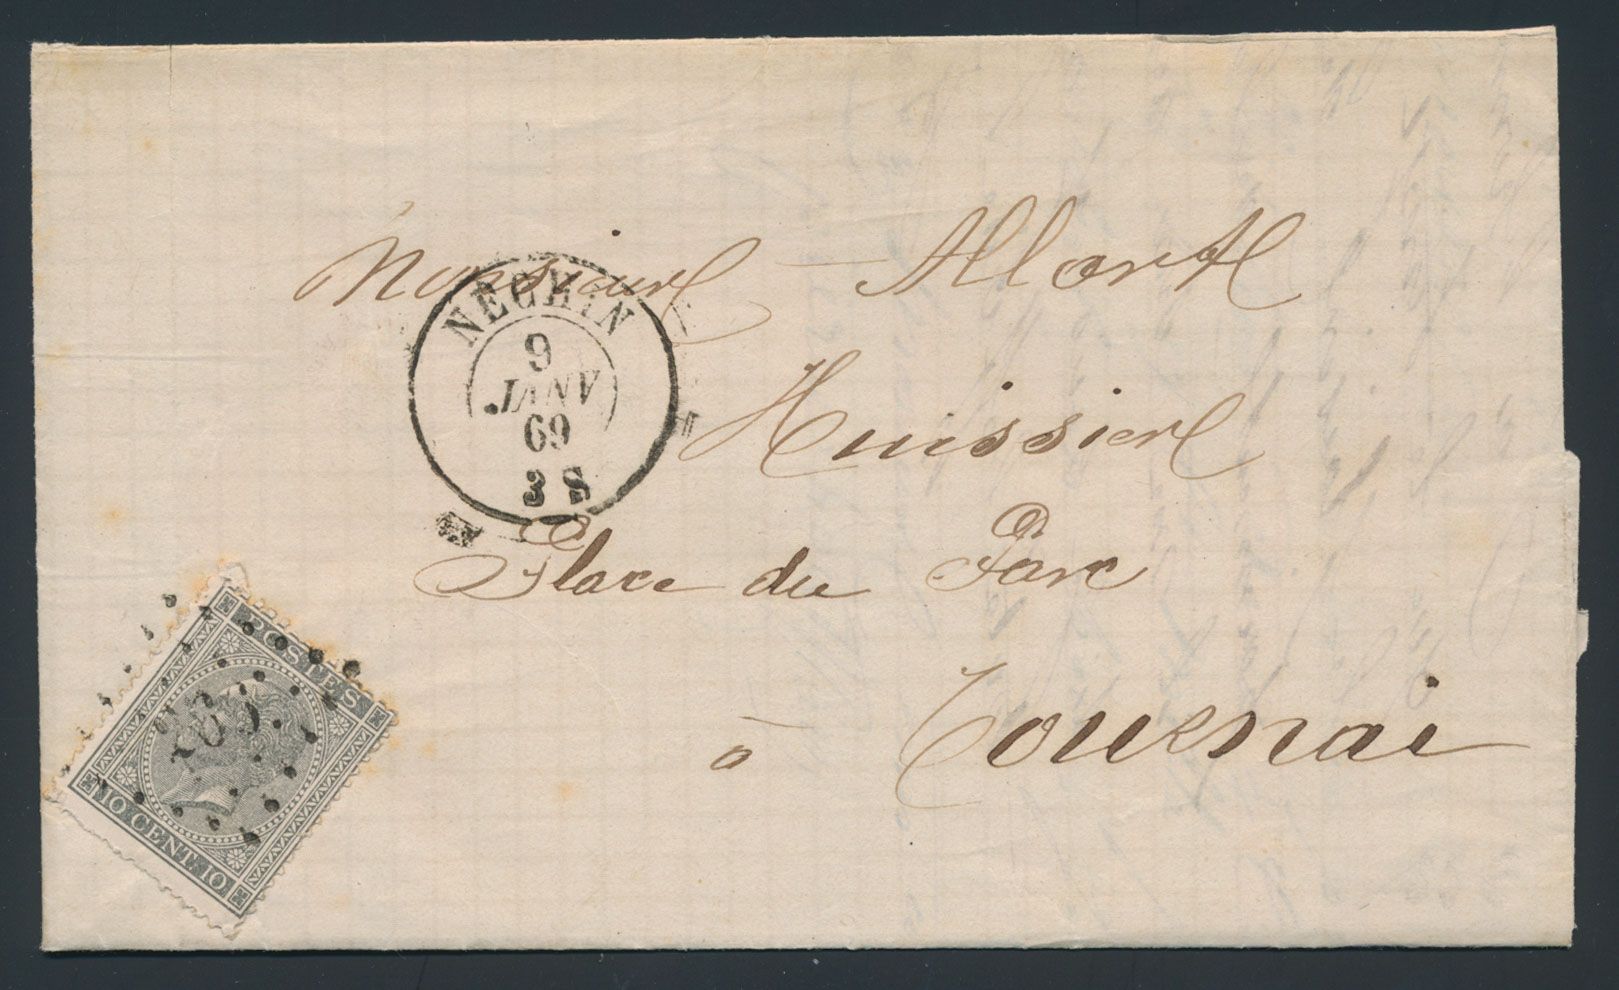 Monsieur Allart
NÉCHIN
9
JANV
69
3 S
Huissier
Place du Parc
à Tournai
POSTES
10 CENT. 10